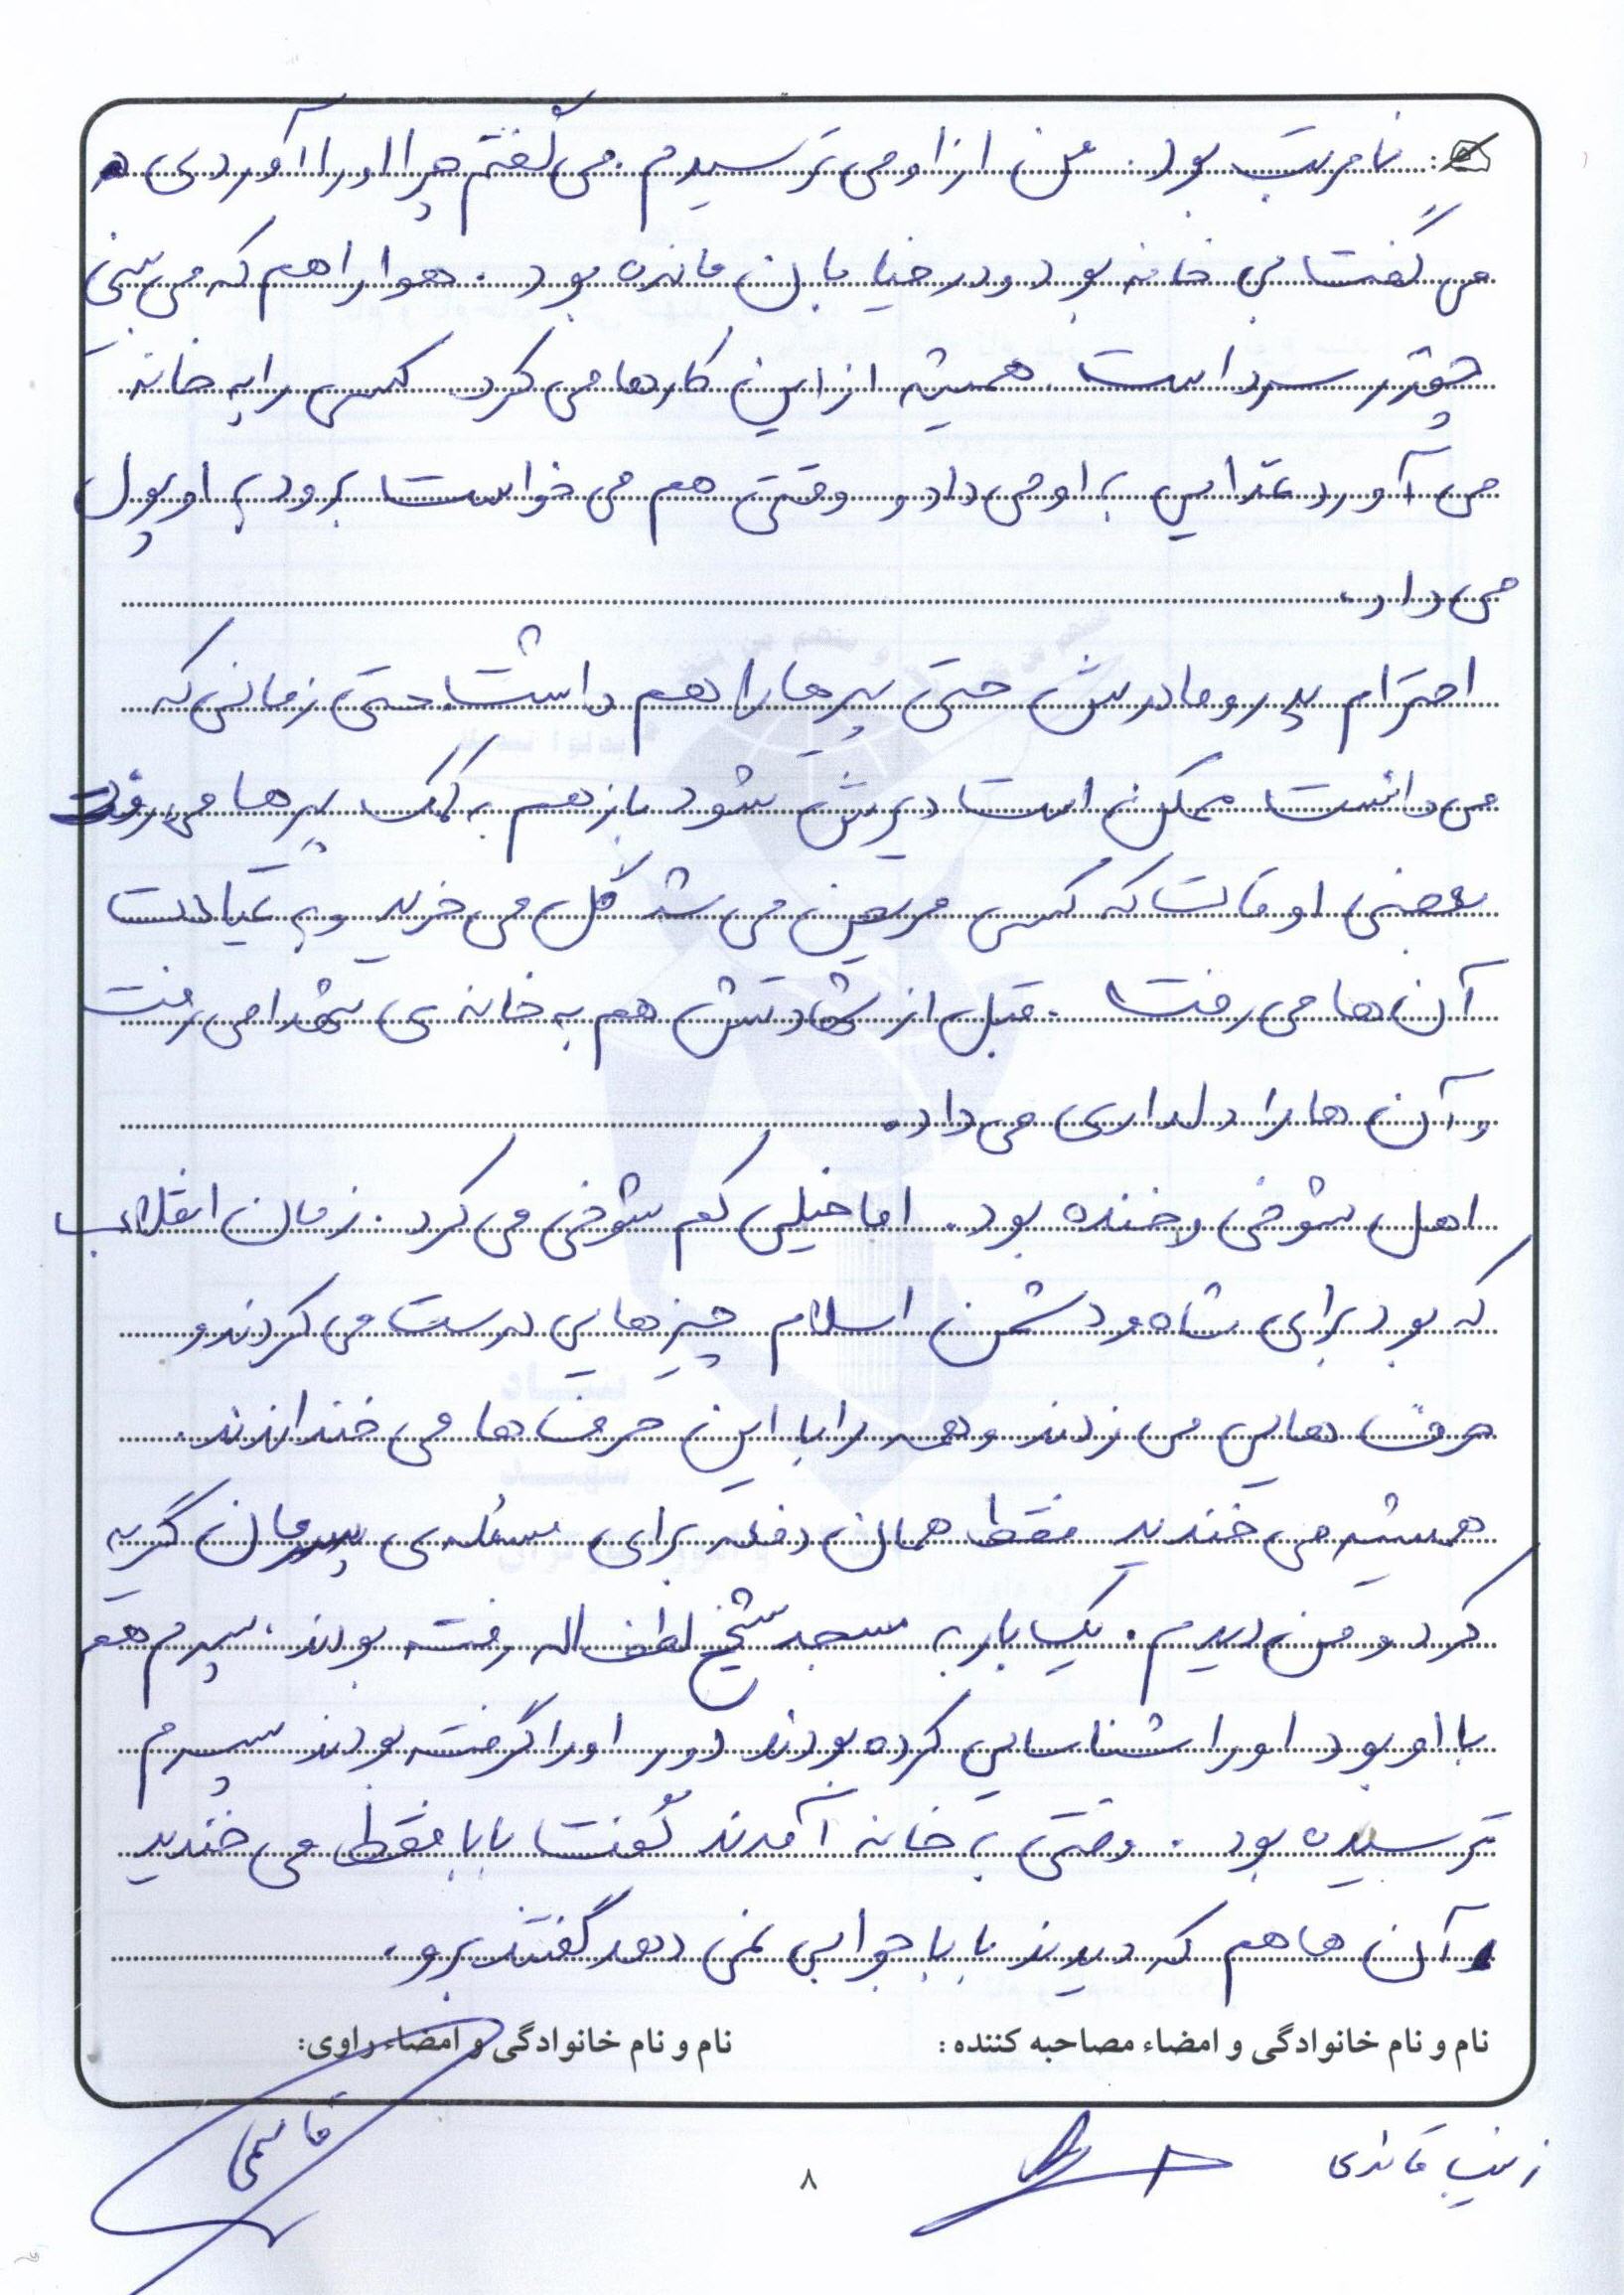 نامرتب بود. من از او می ترسیدم. می گفتم چرا او را آوردی
می گفت بی خانه بود و در خیابان مانده بود. هوا را هم که می بینی
چقدر سرد است. همیشه از این کارها می کرد. کسی را به خانه
می آورد غذایی به او می داد و وقتی هم می خواست برود به او پول
می داد.
احترام پدر و مادرش حتی پیرها را هم داشت. حتی زمانی که
می دانست ممکن است دیرش شود باز هم به کمک پیرها می رفت
بعضی اوقات که کسی مریض می شد گل می خرید و به عیادت
آن ها می رفت. قبل از شهادتش هم به خانه ی شهدا می رفت
و آن ها را دلداری می داد.
اهل شوخی و خنده بود. اما خیلی کم شوخی می کرد. زمان انقلاب
که بود برای شاه و دشمن اسلام چیزهایی درست می کردند و
حرف هایی می زدند و همه را با این حرف ها می خنداندند.
همیشه می خندید فقط همان دفعه برای مسئله ی پسرمان گریه
کرد و من دیدم. یک بار به مسجد شیخ لطف اله رفته بودند، پسرم هم
با او بود او را شناسایی کرده بودند دور او را گرفته بودند پسرم
ترسیده بود. وقتی به خانه آمدند گفت بابا فقط می خندید
و آن ها هم که دیدند بابا جوابی نمی دهد گفتند برو.
نام و نام خانوادگی و امضاء مصاحبه کننده: نام و نام خانوادگی و امضاء راوی:
زینب قائدی قاسمی
۸